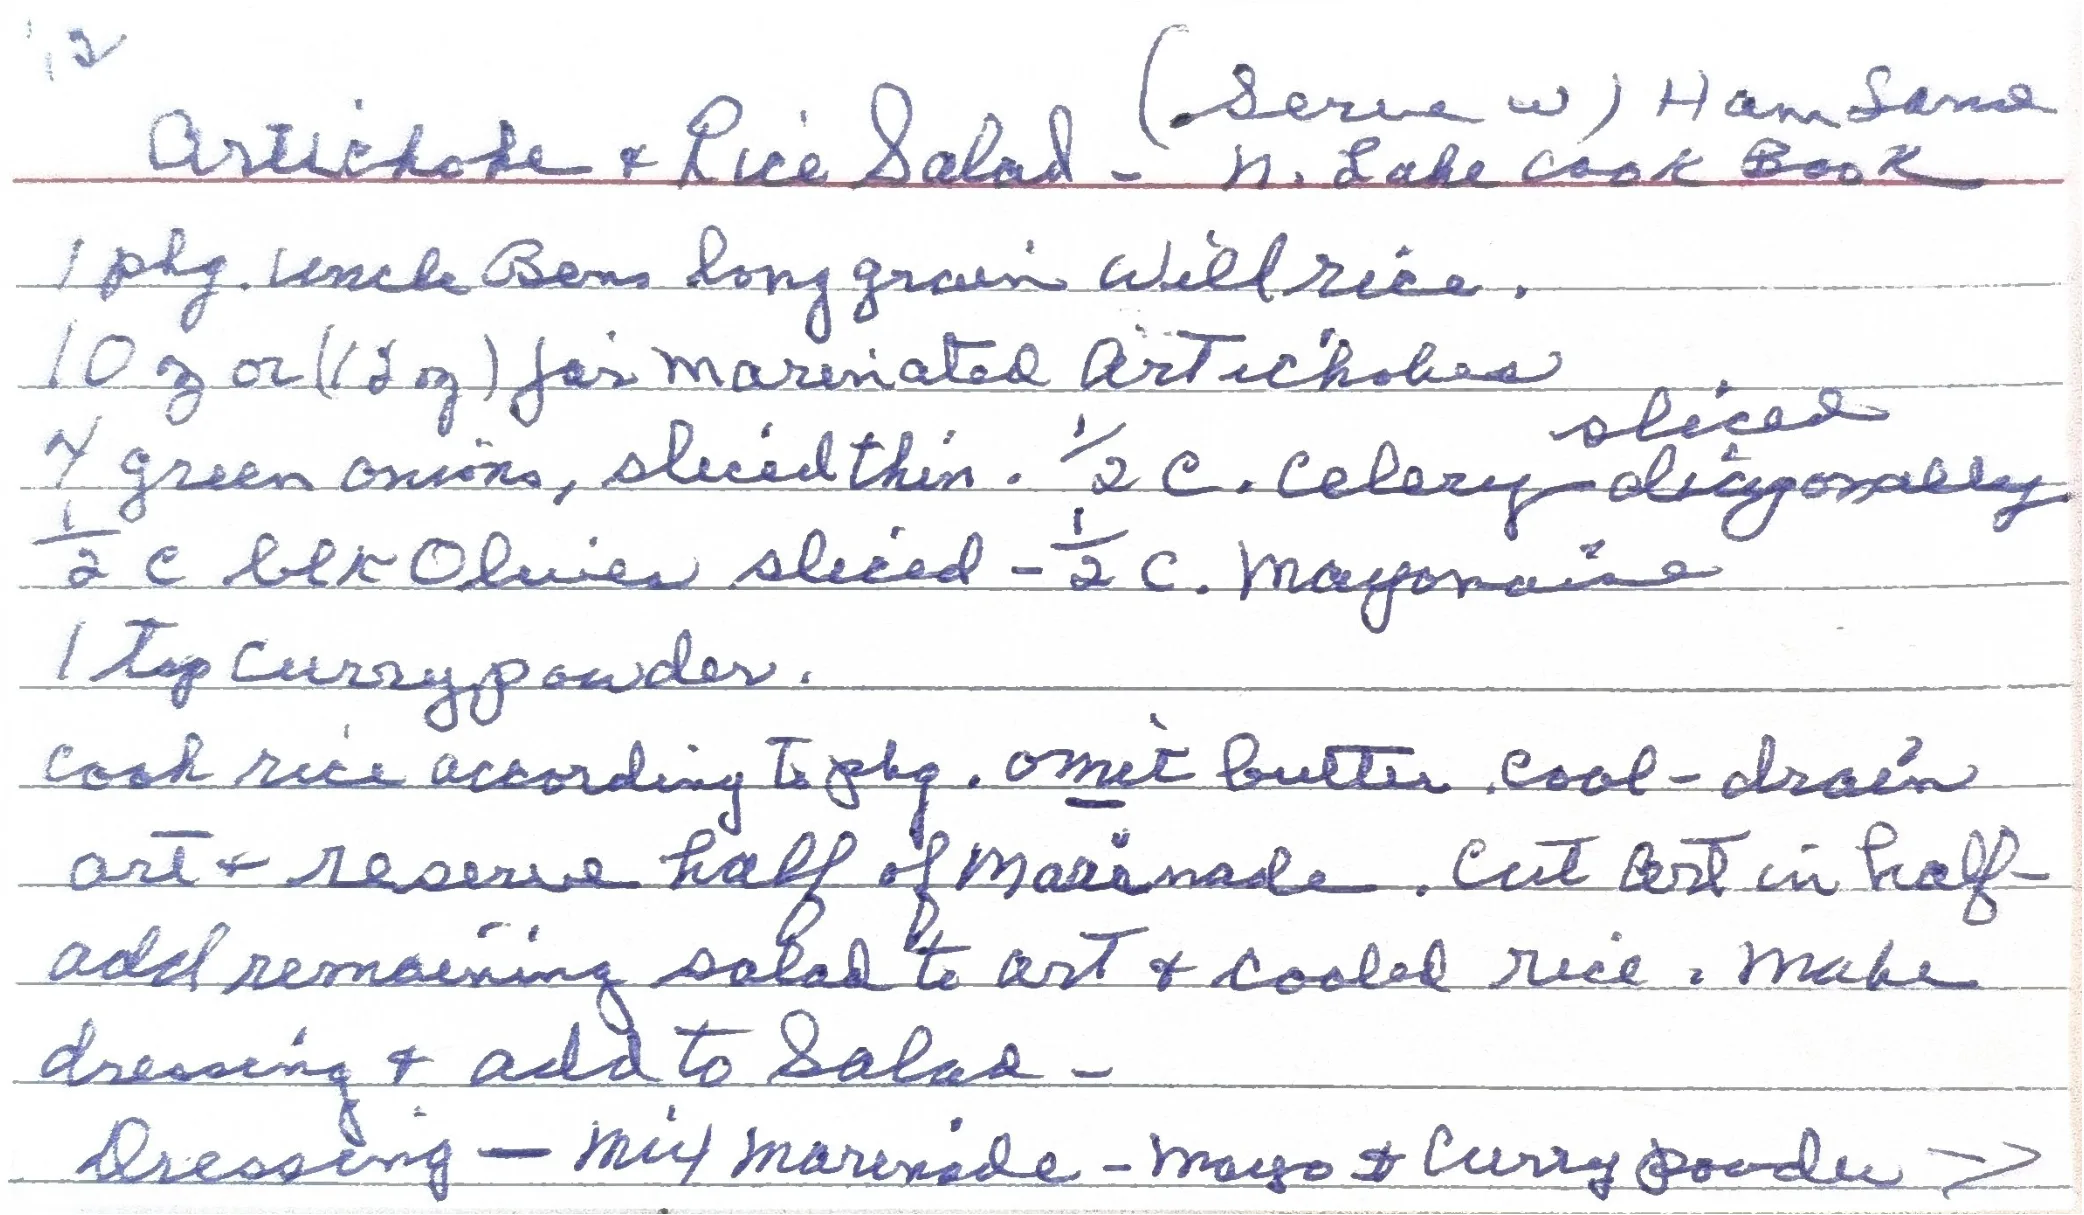 '12
(Serve w) Ham Sand
Artichoke & Rice Salad - N. Lake Cook Book
1 pkg. Uncle Bens long grain Wild rice.
10 z or (12 oz) jar marinated Artichokes
4 green onions, sliced thin. 1/2 C. Celery sliced diagonally.
1/2 C blk Olives sliced - 1/2 C. Mayonaise
1 tsp Curry powder.
Cook rice according to pkg. omit butter. Cool - drain
art & reserve half of Marinade. Cut art in half -
add remaining salad to art & cooled rice. Make
dressing & add to Salad -
Dressing — Mix marinade - mayo & Curry powder >